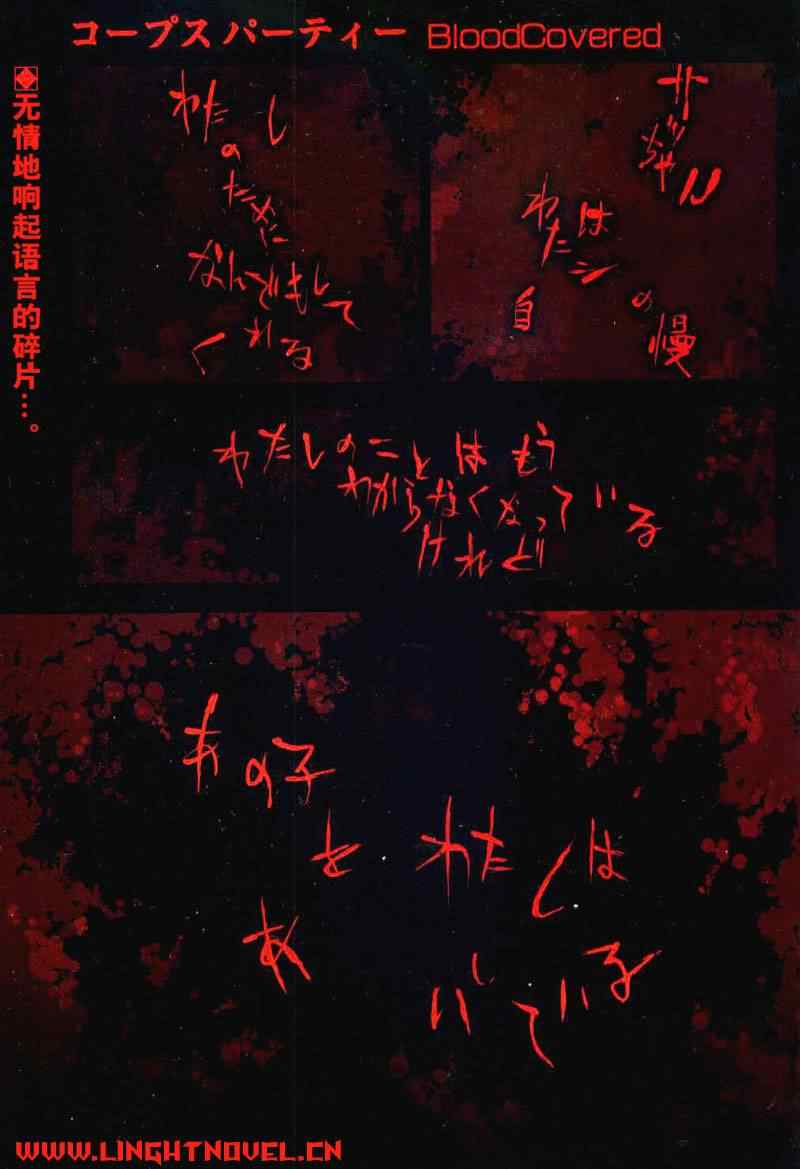 コープス パーティー BloodCovered
无情地响起语言的碎片…。
サッちゃん
わたシは
自慢の
わたしの
ために
なんどもして
くれる
わたしのことはもう
わからなくなっている
けれど
あの子
を
わたしは
あ
ている
WWW.LINGHTNOVEL.CN